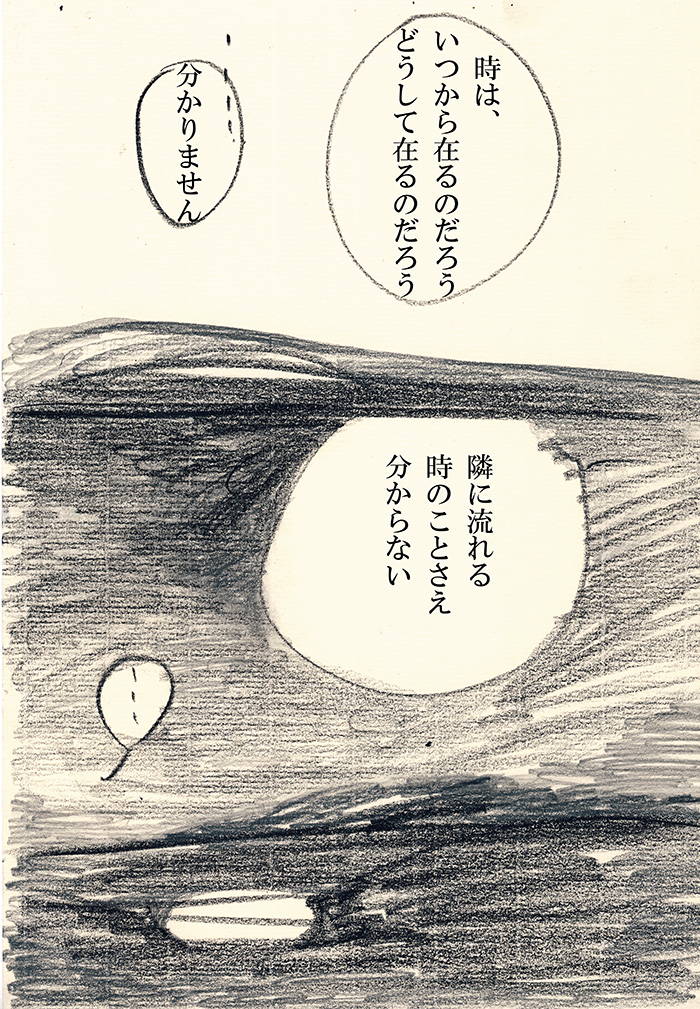 時は、
いつから在るのだろう
どうして在るのだろう
分かりません
隣に流れる
時のことさえ
分からない